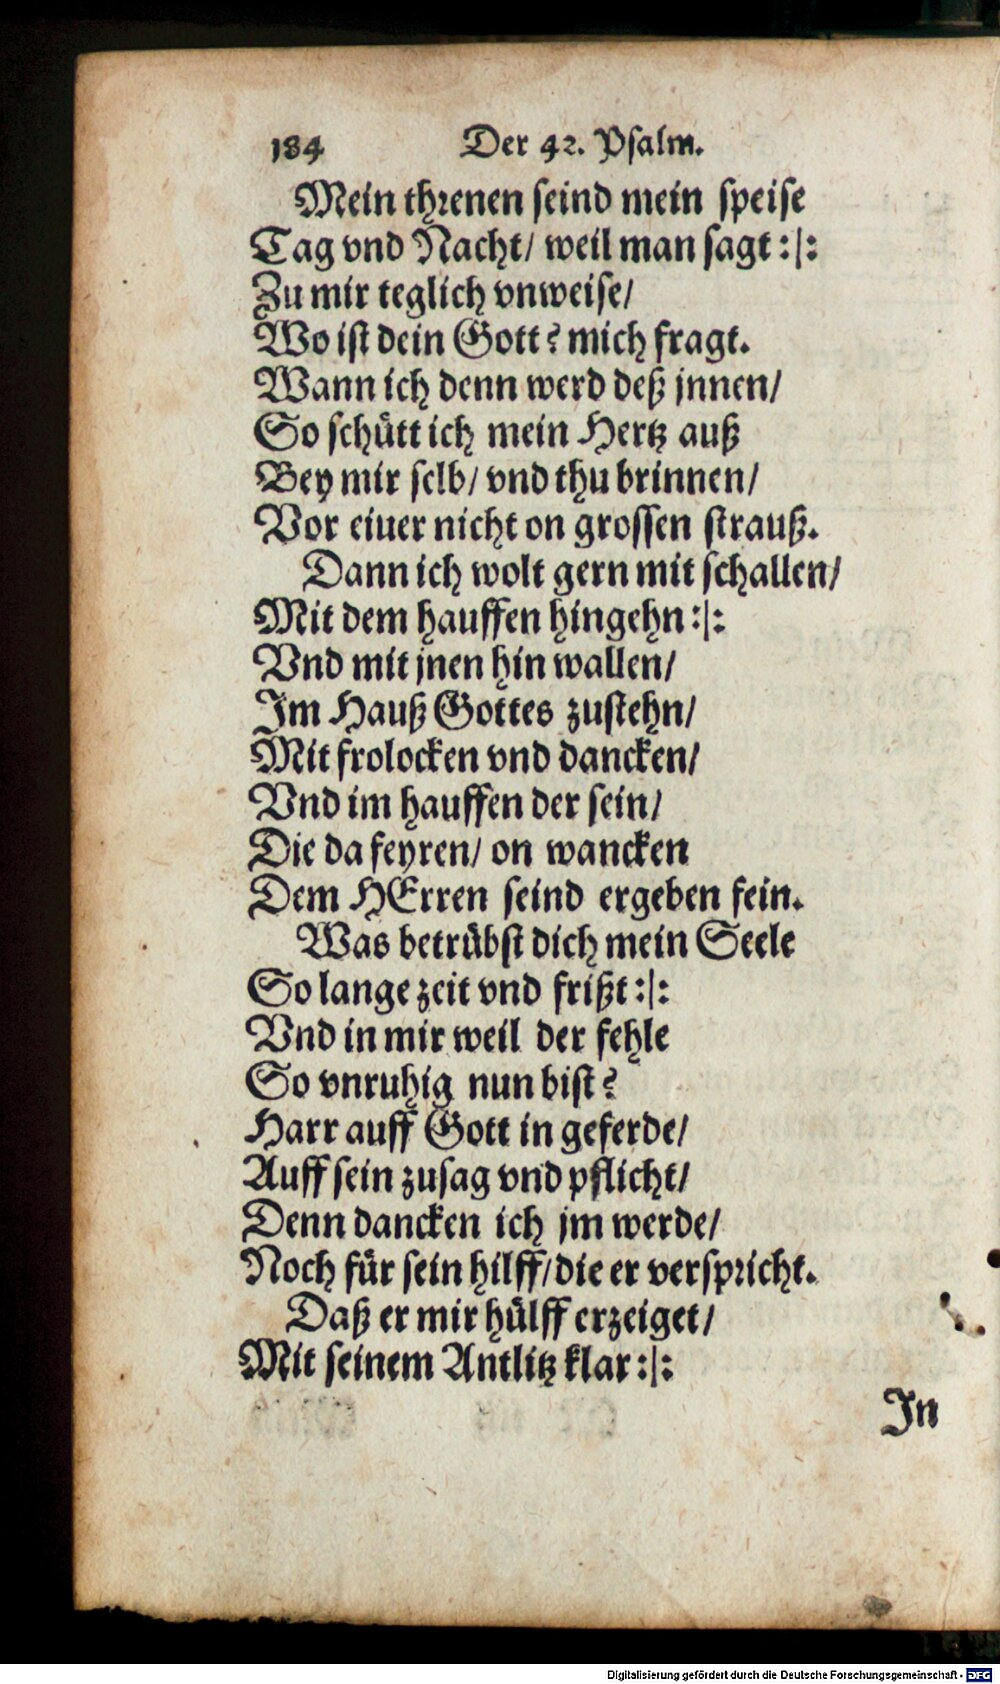 184 Der 42. Psalm.
Mein threnen seind mein speise
Tag vnd Nacht/ weil man sagt :|:
Zu mir teglich vnweise/
Wo ist dein Gott? mich fragt.
Wann ich denn werd deß jnnen/
So schütt ich mein Hertz auß
Bey mir selb/ vnd thu brinnen/
Vor eiuer nicht on grossen strauß.
Dann ich wolt gern mit schallen/
Mit dem hauffen hingehn :|:
Vnd mit jnen hin wallen/
Im Hauß Gottes zustehn/
Mit frolocken vnd dancken/
Vnd im hauffen der sein/
Die da feyren/ on wancken
Dem HErren seind ergeben fein.
Was betrübst dich mein Seele
So lange zeit vnd frißt :|:
Vnd in mir weil der fehle
So vnruhig nun bist?
Harr auff Gott in geferde/
Auff sein zusag vnd pflicht/
Denn dancken ich jm werde/
Noch für sein hilff/ die er verspricht.
Daß er mir hülff erzeiget/
Mit seinem Antlitz klar :|:
In
Digitalisierung gefördert durch die Deutsche Forschungsgemeinschaft - DFG